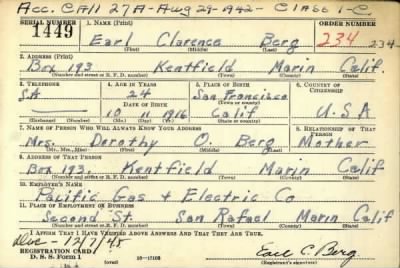 Acc. Call 27A - Aug 29-1942 - Class 1-C.
SERIAL NUMBER 1. NAME (Print) ORDER NUMBER
1449 Earl Clarence Berg 234 234
(First) (Middle) (Last)
2. ADDRESS (Print)
Box 193 Kentfield Marin Calif.
(Number and street or R. F. D. number) (Town) (County) (State)
3. TELEPHONE 4. AGE IN YEARS 5. PLACE OF BIRTH 6. COUNTRY OF CITIZENSHIP
S.A 24 San Francisco
DATE OF BIRTH (Town or county)
10 11 1916 Calif U.S.A
(Exchange) (Number) (Mo.) (Day) (Yr.) (State or country)
7. NAME OF PERSON WHO WILL ALWAYS KNOW YOUR ADDRESS 8. RELATIONSHIP OF THAT PERSON
Mrs. Dorothy O Berg Mother
(Mr., Mrs., Miss) (First) (Middle) (Last)
9. ADDRESS OF THAT PERSON
Box 193, Kentfield Marin Calif
(Number and street or R. F. D. number) (Town) (County) (State)
10. EMPLOYER'S NAME
Pacific Gas + Electric Co
11. PLACE OF EMPLOYMENT OR BUSINESS
Second St. San Rafael Marin Calif
(Number and street or R. F. D. number) (Town) (County) (State)
I AFFIRM THAT I HAVE VERIFIED ABOVE ANSWERS AND THAT THEY ARE TRUE.
Disc - 12/7/45
REGISTRATION CARD
D. S. S. Form 1 (over) 16—17105 Earl C. Berg
(Registrant's signature)